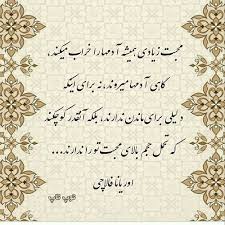 محبت زیادی همیشه آدمها را خراب میکند،
گاهی آدمها میروند، نه برای اینکه
دلیلی برای ماندن ندارند، بلکه آنقدر کوچکند
که تحمل حجم بالای محبت تو را ندارند...
اوریانا فالاچی
توپ تاپ